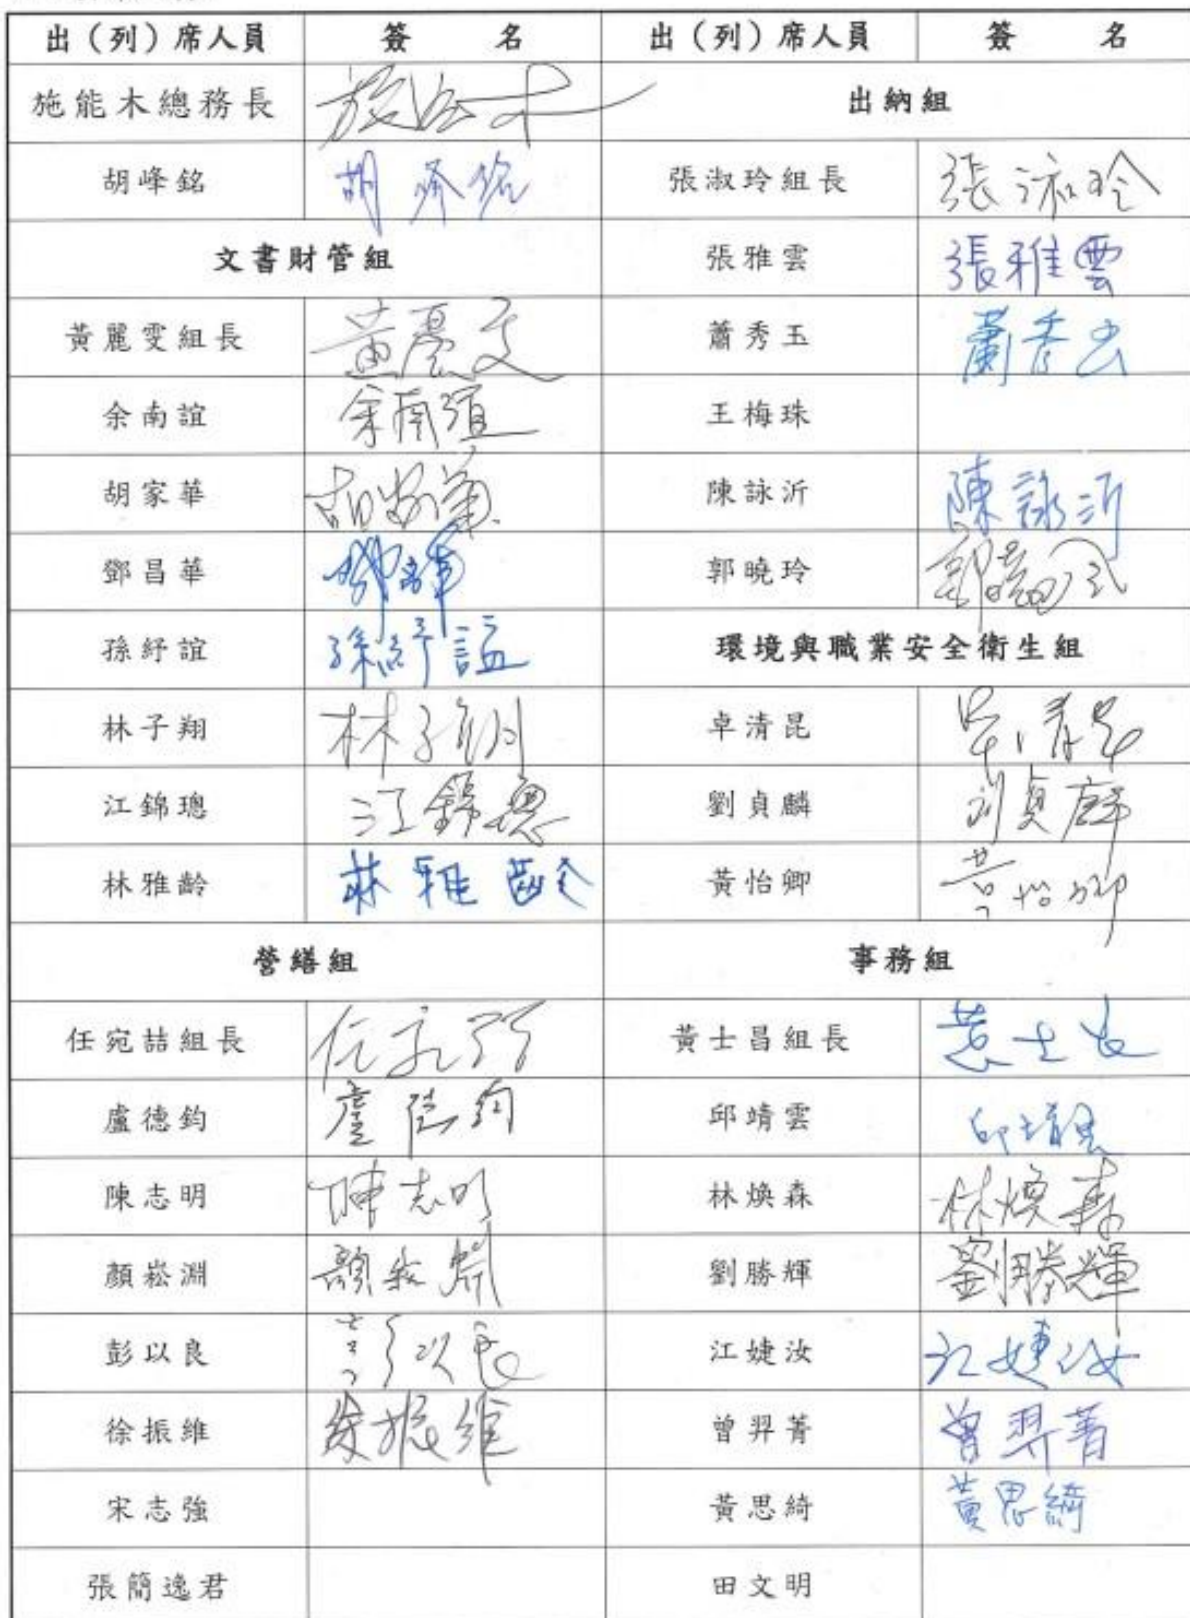 出（列）席人員 簽 名 出（列）席人員 簽 名
施能木總務長 施能木 出納組
胡峰銘 胡峰銘 張淑玲組長 張淑玲
文書財管組 張雅雲 張雅雲
黃麗雯組長 黃麗雯 蕭秀玉 蕭秀玉
余南誼 余南誼 王梅珠
胡家華 胡家華 陳詠沂 陳詠沂
鄧昌華 鄧昌華 郭曉玲 郭曉玲
孫紓誼 孫紓誼 環境與職業安全衛生組
林子翔 林子翔 卓清昆 卓清昆
江錦璁 江錦璁 劉貞麟 刘貞麟
林雅齡 林雅齡 黃怡卿 黃怡卿
營繕組 事務組
任宛喆組長 黃士昌組長 黃士昌
盧德鈞 盧德鈞 邱靖雲 邱靖雲
陳志明 陳志明 林煥森 林煥森
顏崧淵 顏崧淵 劉勝輝 劉勝輝
彭以良 彭以良 江婕汝 江婕汝
徐振維 徐振維 曾羿菁 曾羿菁
宋志強 黃思綺 黃思綺
張簡逸君 田文明